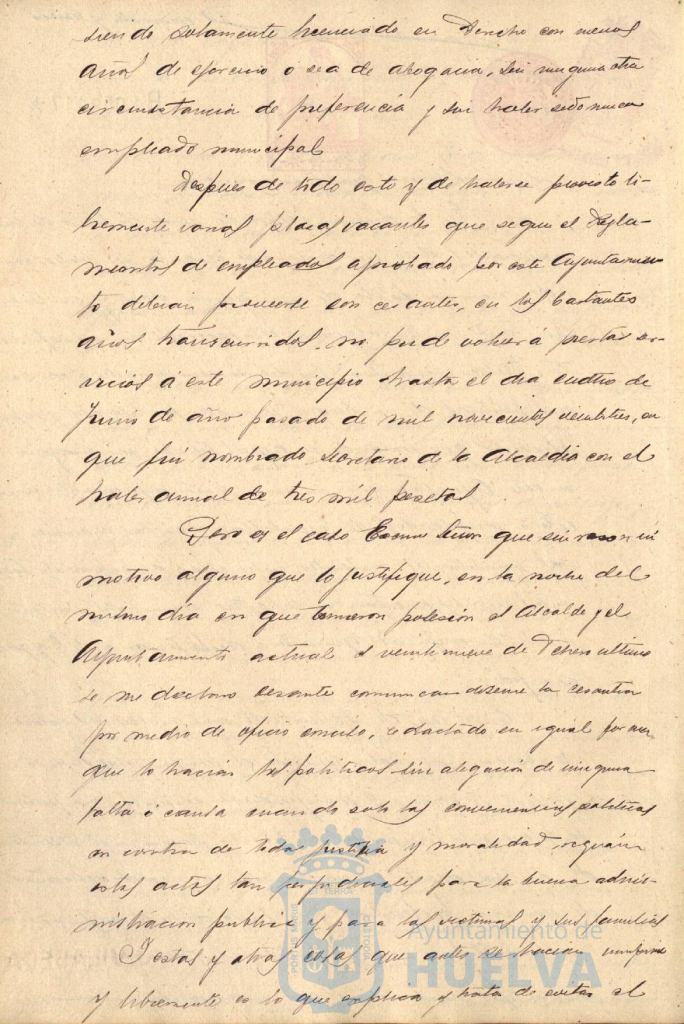 siendo solamente licenciado en Derecho con menos
años de ejercicio ó sea de abogacia, sin ninguna otra
circunstancia de preferencia y sin haber sido nunca
empleado municipal
Despues de todo esto y de haberse provisto li-
bremente varias plazas vacantes que segun el Regla-
mento de empleados aprobado por este Ayuntamien-
to debian proveerse con cesantes, en los bastantes
años transcurridos, no pude volver á prestar ser-
vicios á este municipio hasta el dia cuatro de
Junio de año pasado de mil novecientos veintitres, en
que fui nombrado Secretario de la Alcaldia con el
haber anual de tres mil pesetas
Pero es el caso Excmo Señor que sin razon ni
motivo alguno que lo justifique, en la noche del
mismo dia en que tomaron posesion el Alcalde y el
Ayuntamiento actual el veintinueve de Enero ultimo
se me declaro cesante comunicandoseme la cesantia
por medio de oficio redactado en igual forma
que lo hacian los politicos sin alegación de ninguna
falta ó causa cuando solo las conveniencias politicas
en contra de toda justicia y moralidad
estos actos tan perjudiciales para la buena admi-
nistracion publica y para las victimas y sus familias
Y estas y otras cosas que antes se hacian
y libremente es lo que explica y trata de evitar el
Ayuntamiento de
HUELVA